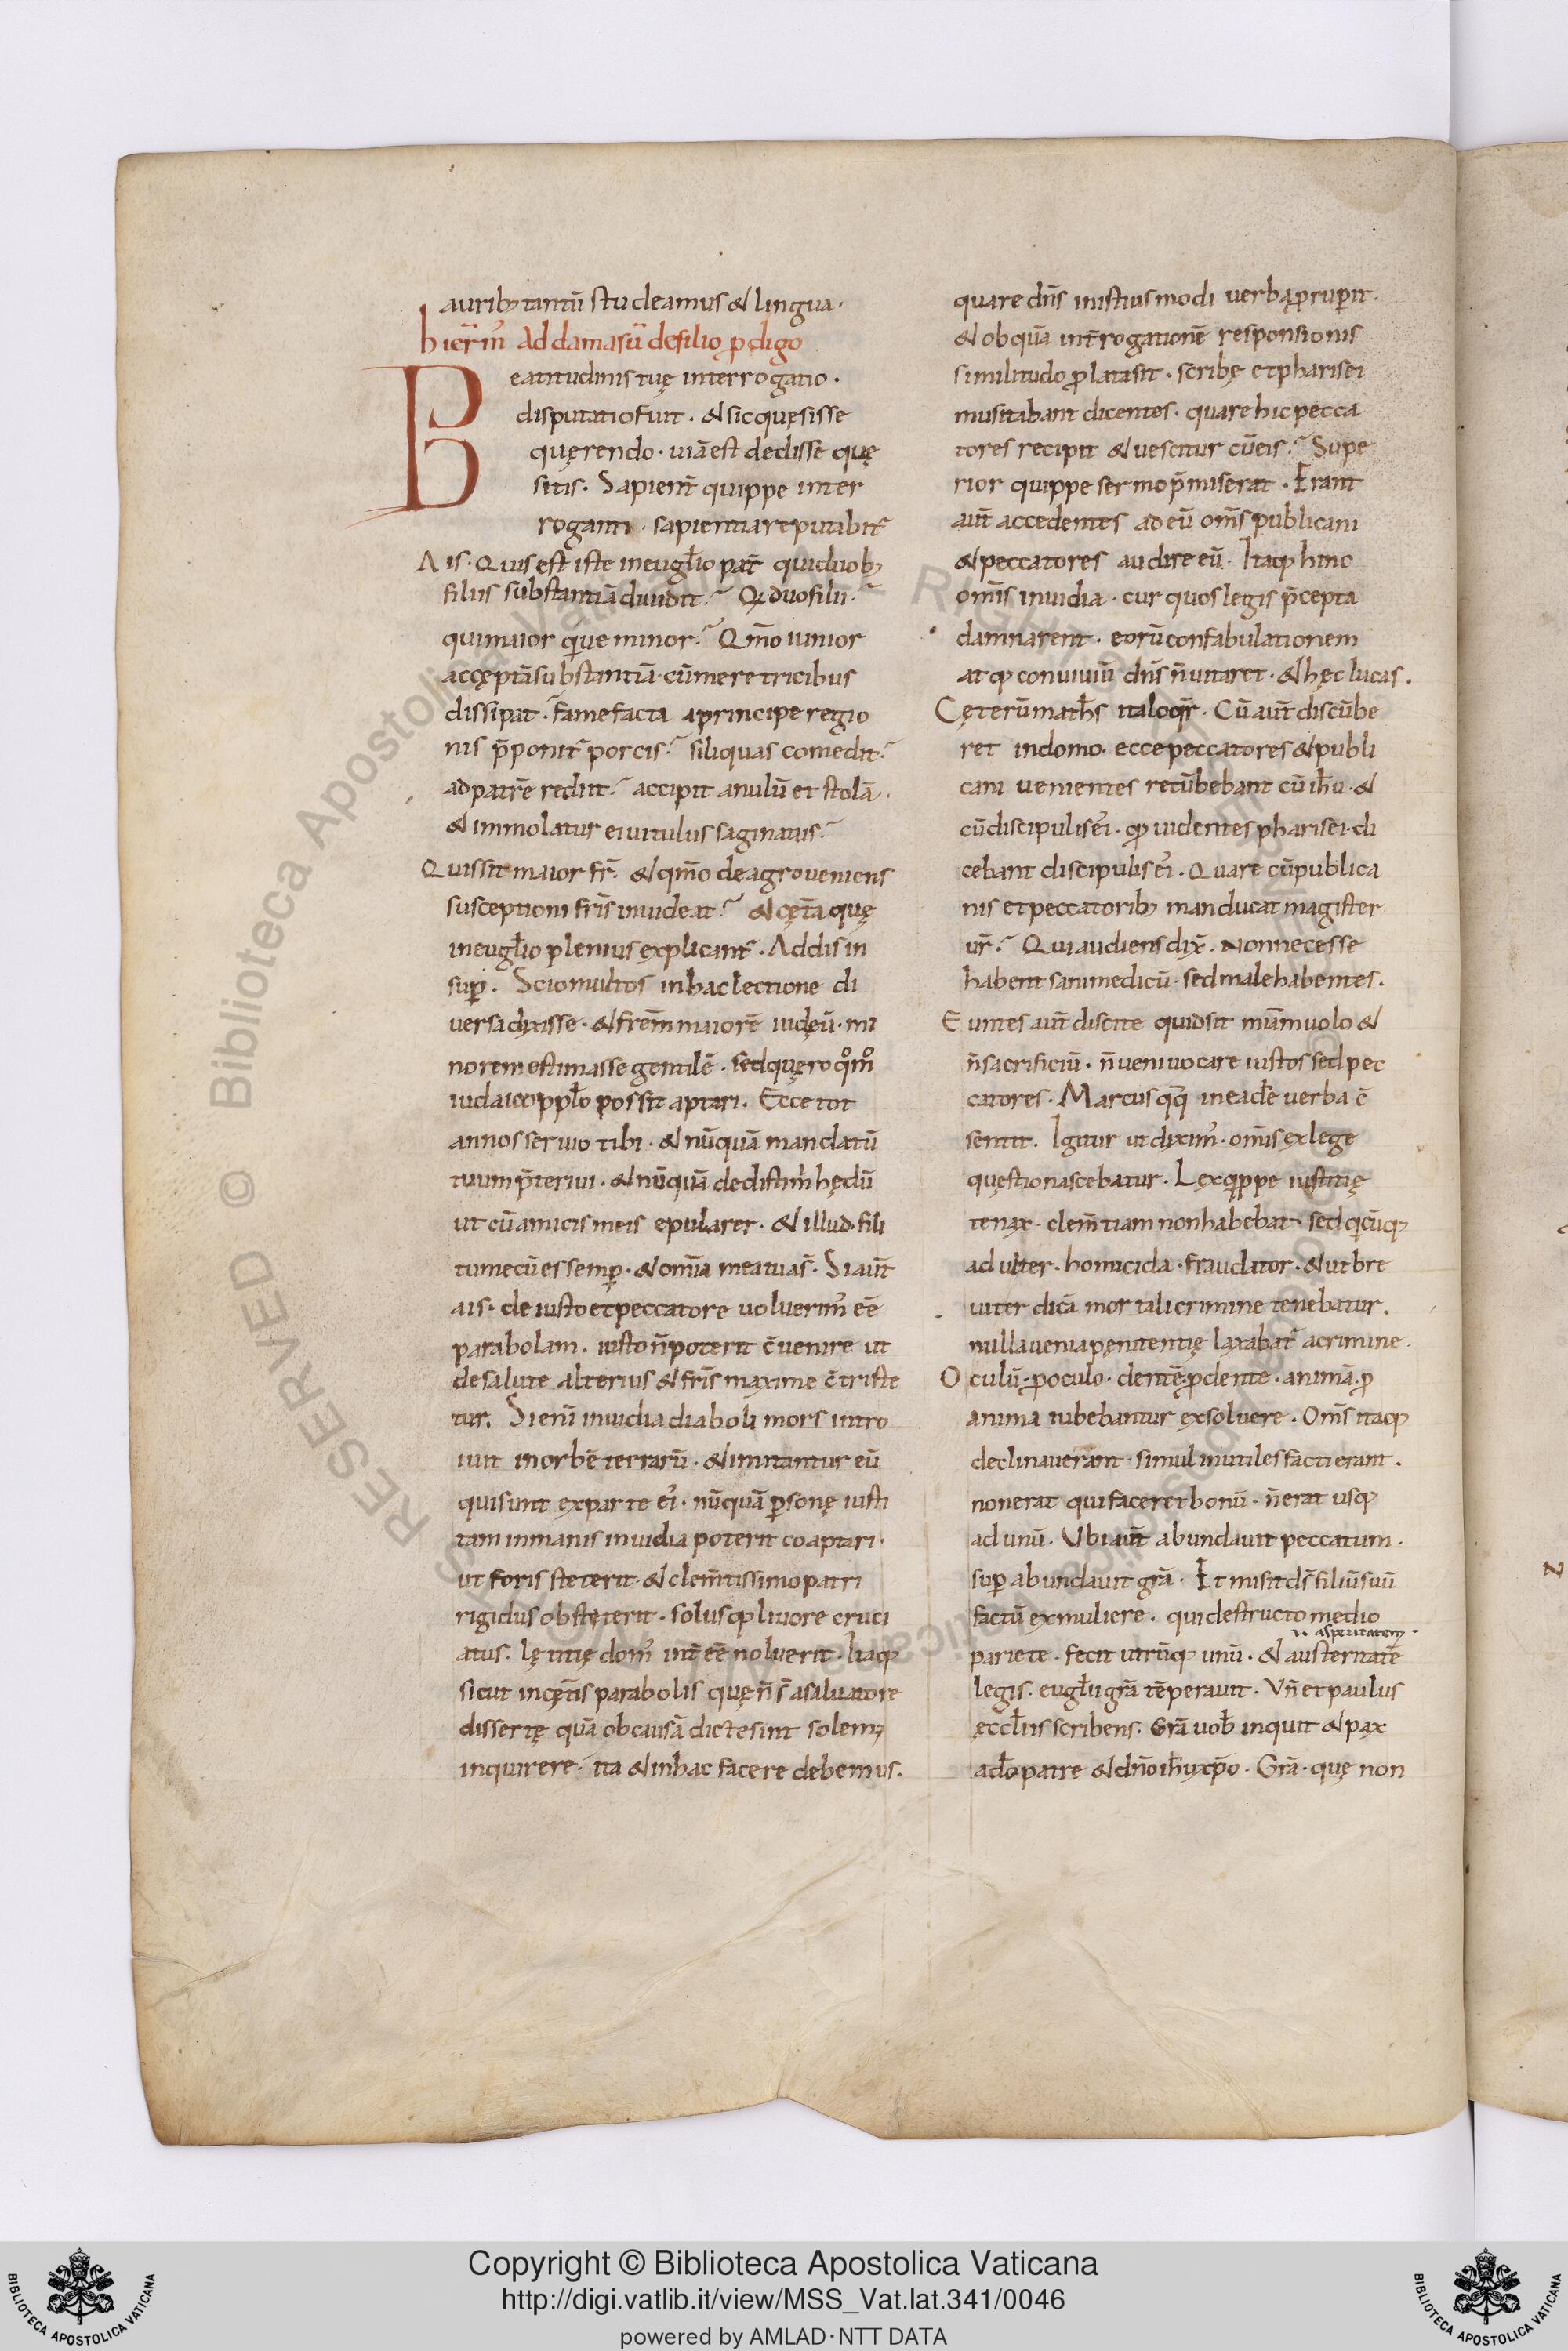 aurib; tantū studeamus & lingua·
hierm̄ Ad damasū de filio ꝓdigo
Beatitudinis tuę interrogatio·
disputatio fuit· & sic quęsisse
quęrendo· uiā est dedisse quę
sitis· Sapienti quippe inter
roganti· sapientia reputabit᷑
Ais· Quis est iste in eugłio pat̄ qui duob;
filiis substantiā diuidit? Q; duo filii?
qui maior qͥ ue minor? Qm̄o iunior
accęptā substantiā· cū meretricibus
dissipat· fame facta a principe regio
nis p̄ponit᷑ porcis? siliquas comedit?
ad patrē rediit? accipit anulū et stolā·
& immolatur ei uitulus saginatus?
Quis sit maior fr̄· & qm̄o de agro ueniens
susceptioni fr̄is inuideat? & cęt̄a quę
in eugłio plenius explicant᷑· Addis in
suꝑ· Scio multos in hac lectione di
uersa dixisse· & frēm maiorē iudęū· mi
norem estimasse gentilē· sed quęro qͦmͦ
iudaico ppło possit aptari· Ecce tot
annos seruio tibi· & nūquā mandatū
tuum p̄teriui· & nūquā dedisti m̄ hędū
ut cū amicis meis epularer· & illud· fili
tu mecū es semꝑ· & om̄ia mea tua s̄· Si aut̄
ais· de iusto et peccatore uoluerim᷒ eē
parabolam· iusto n̄ poterit c̄uenire ut
de salute alterius & fr̄is maxime c̄triste
tur· Si enī inuidia diaboli mors intro
iuit in orbē terrarū· & imitantur eū
qui sunt ex parte ei᷒· nūquā ꝑsonę iusti
tam inmanis inuidia poterit coaptari·
ut foris steterit· & clem̄tissimo patri
rigidus obstęterit· solusqꝫ liuore cruci
atus· lętitię dom᷒ int̄eē noluerit· Itaqꝫ
sicut in cęt̄is parabolis quę n̄ s̄ a saluatore
dissertę quā ob causā dicte sint solem;
inquirere· ita & in hac facere debemus·
quare dn̄s inistius modi uerba ꝓruꝑit·
& ob quā int̄rogationē responsionis
similitudo ꝓlata sit· scribę et pharisei
musitabant dicentes· quare hic pecca
tores recipit & uescitur cū eis? Supe
rior quippe sermo p̄miserat· Erant
aut̄ accedentes ad eū om̄s publicani
& peccatores audire eū· Itaqꝫ hinc
om̄is inuidia· cur quos legis p̄cepta
damnarent· eorū confabulationem
atqꝫ conuiuiū dn̄s n̄ uitaret· & hęc lucas·
Cęterū math̄s ita loqr̄· Cū aut̄ discūbe
ret in domo· ecce peccatores & publi
cani uenientes recūbebant cū ih̄u· &
cū discipulis ei᷒· qꝫ uidentes pharisei· di
cebant discipulis ei᷒· Quare cū publica
nis et peccatorib; manducat magister
ur̄? Qui audiens dix̄· Non necesse
habent sani medicū· sed male habentes·
Euntes aut̄ discite quid sit miām uolo &
n̄ sacrificiū· n̄ ueni uocare iustos sed pec
catores· Marcus qꝫ in eadē uerba c̄
sentit· Igitur ut dixim᷒· om̄is ex lege
quęstio nascebatur· Lex qͥppe iustitię
tenax· clem̄tiam non habebat· sed qͥcūqꝫ
adulter· homicida· fraudator· & ut bre
uiter dicā mortali crimine tenebatur·
nulla uenia pęnitentię laxabat᷑ a crimine·
Oculū ꝓ oculo· dentē ꝓ dente· animā ꝓ
anima iubebantur exsoluere· Om̄s itaqꝫ
declinauerant· simul inutiles facti erant·
non erat qui faceret bonū· n̄ erat usqꝫ
ad unū· Ubi aut̄ abundauit peccatum·
suꝑabundauit grā· Et misit ds̄ filiū suū
factū ex muliere· qui destructo medio
ł asperitatem·
pariete· fecit utrūqꝫ unū· & austeritatē
legis· eugłii grā tēperauit· Vn̄ et paulus
ęccłiis scribens· Grā uob̄ inquit & pax
a dō patre & dn̄o ih̄u xp̄o· Grā· quę non
Copyright © Biblioteca Apostolica Vaticana
http://digi.vatlib.it/view/MSS_Vat.lat.341/0046
powered by AMLAD·NTT DATA